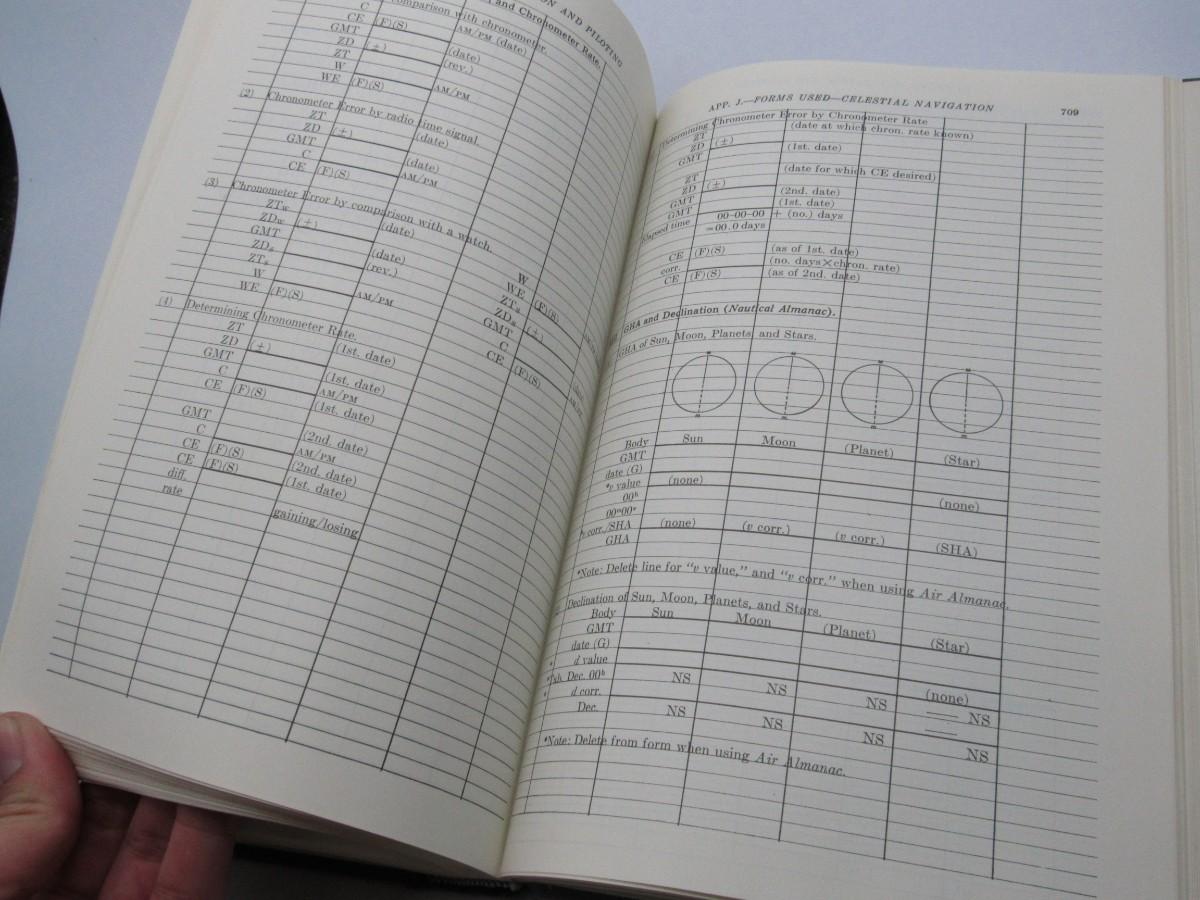 ON AND PILOTING
and Chronometer Rate.
comparison with chronometer.
C AM/PM (date)
CE (F)(S)
GMT (date)
ZD (±) (rev.)
ZT
W AM/PM
WE (F)(S)
(2) Chronometer Error by radio time signal.
ZT (date)
ZD (±)
GMT (date)
C AM/PM
CE (F)(S)
(3) Chronometer Error by comparison with a watch.
ZTw (date)
ZDw (±)
GMT (date)
ZDs (rev.)
ZTs
W AM/PM
WE (F)(S)
W
WE (F)(S)
ZTs
ZDs (±)
GMT
C
CE (F)(S)
(4) Determining Chronometer Rate.
ZT (1st. date)
ZD (±)
GMT (1st. date)
C AM/PM
CE (F)(S) (1st. date)
GMT (2nd. date)
C AM/PM
CE (F)(S) (2nd. date)
CE (F)(S) (1st. date)
diff.
rate gaining/losing
APP. J.—FORMS USED—CELESTIAL NAVIGATION 709
Determining Chronometer Error by Chronometer Rate
ZT (date at which chron. rate known)
ZD (±)
GMT (1st. date)
ZT (date for which CE desired)
ZD (±)
GMT (2nd. date)
GMT (1st. date)
Elapsed time 00-00-00 + (no.) days
=00.0 days
CE (F)(S) (as of 1st. date)
corr. (no. days×chron. rate)
CE (F)(S) (as of 2nd. date)
GHA and Declination (Nautical Almanac).
GHA of Sun, Moon, Planets, and Stars.
Body Sun Moon (Planet) (Star)
GMT
date (G)
*v value (none) (none)
00ʰ
00ᵐ00ˢ
*v corr./SHA (none) (v corr.) (v corr.) (SHA)
GHA
*Note: Delete line for "v value," and "v corr." when using Air Almanac.
Declination of Sun, Moon, Planets, and Stars.
Body Sun Moon (Planet) (Star)
GMT
date (G)
* d value (none)
*Tab. Dec. 00ʰ NS NS NS NS
* d corr.
Dec. NS NS NS NS
*Note: Delete from form when using Air Almanac.